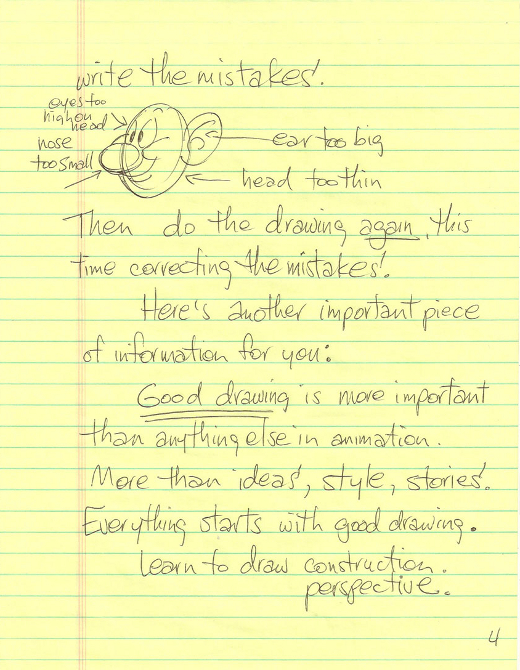 write the mistakes.
eyes too
high on
head
nose
too small
ear too big
head too thin
Then do the drawing again, this
time correcting the mistakes.
Here's another important piece
of information for you:
Good drawing is more important
than anything else in animation.
More than ideas, style, stories.
Everything starts with good drawing.
Learn to draw construction.
perspective.
4